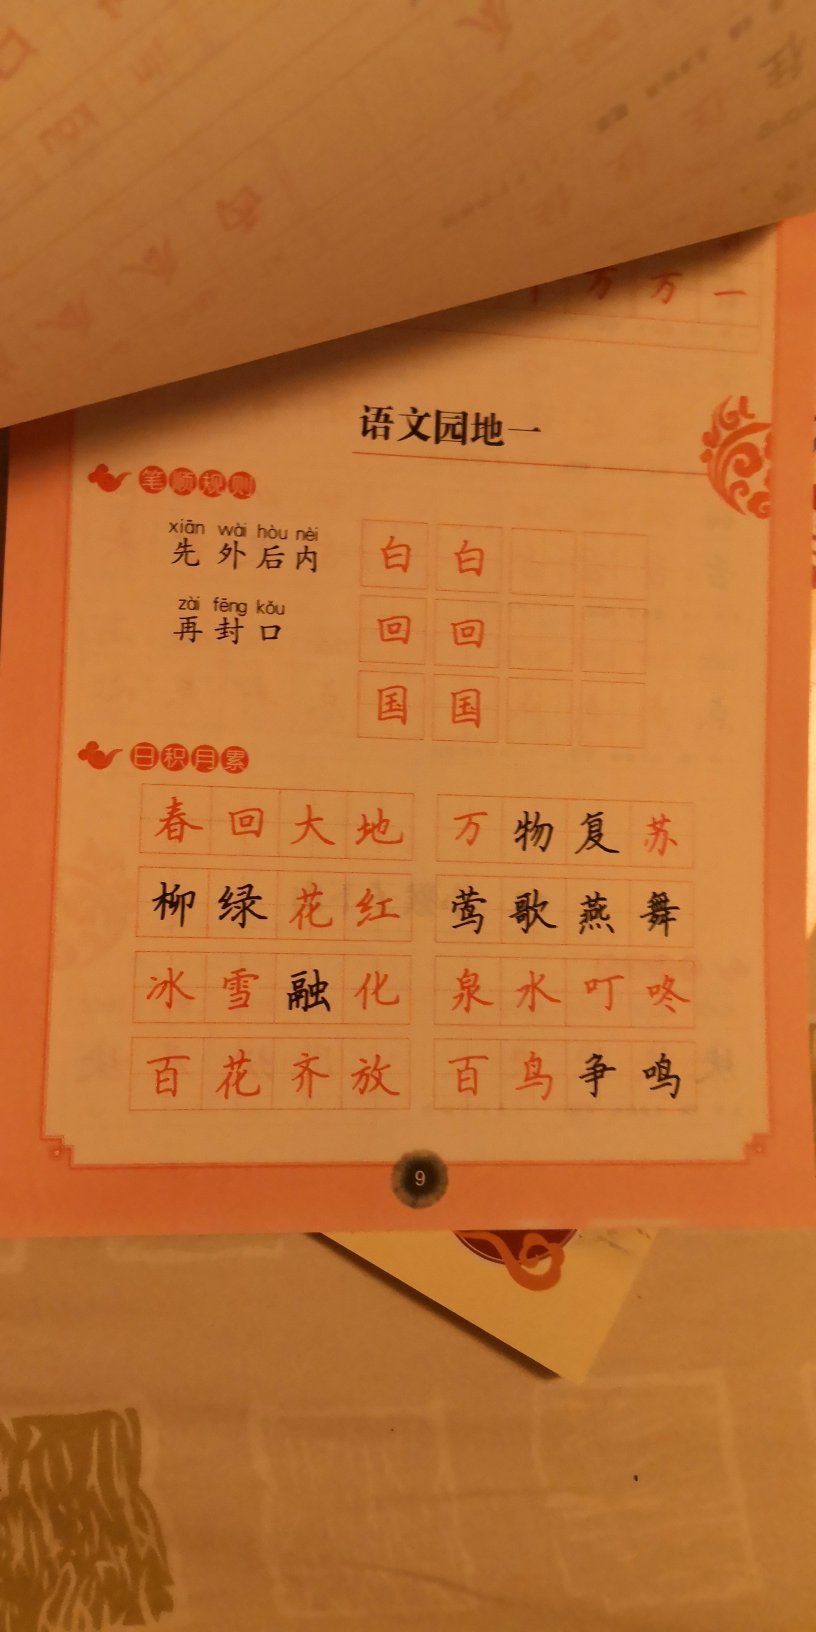 万 万 一
语文园地一
笔顺规则
xiān wài hòu nèi
先外后内
白 白
zài fēng kǒu
再封口
回 回
国 国
日积月累
春回大地 万物复苏
柳绿花红 莺歌燕舞
冰雪融化 泉水叮咚
百花齐放 百鸟争鸣
9